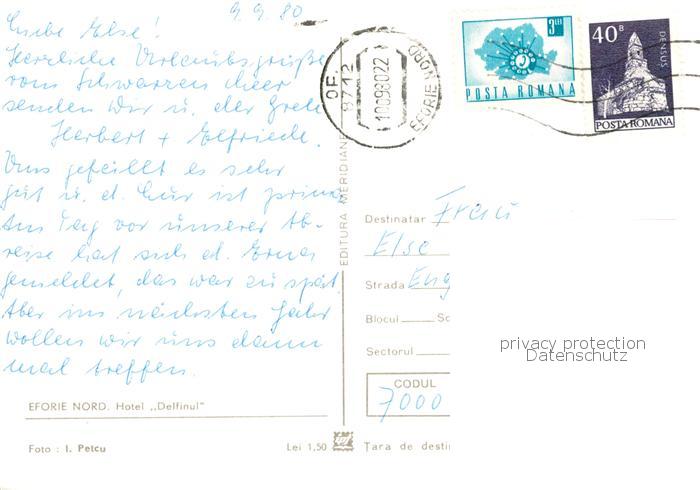 9.9.80
Liebe Else!
Herzliche Urlaubsgrüße
vom Schwarzen Meer
senden wir u. der Grete
Herbert + Elfriede.
Uns gefällt es sehr
gut u. d. Kur ist prima
Am Tag vor unserer Ab-
reise hat sich d. Erna
gemeldet, das war zu spät.
Aber im nächsten Jahr
wollen wir uns dann
mal treffen.
EFORIE NORD. Hotel „Delfinul"
Foto : I. Petcu
Lei 1,50
EDITURA MERIDIANE
OF.
8712
EFORIE NORD
10098022
3 LEI
POSTA ROMANA
40 B
DENSUS
POSTA ROMANA
Destinatar Frau
Else
Strada Eng
Blocul Sc
Sectorul
CODUL
7000
Țara de desti
privacy protection
Datenschutz